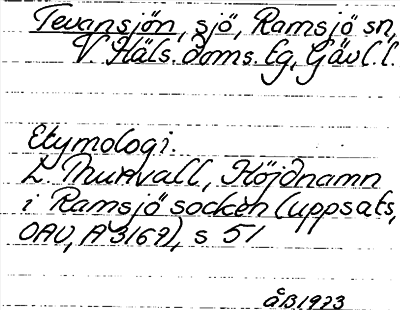 Tevansjön, sjö, Ramsjö sn,
V. Häls. doms. tg, Gävl. l.
Etymologi.
L Murvall, Höjdnamn
i Ramsjö socken (uppsats,
OAU, A 3169), s 51
ÅB 1973